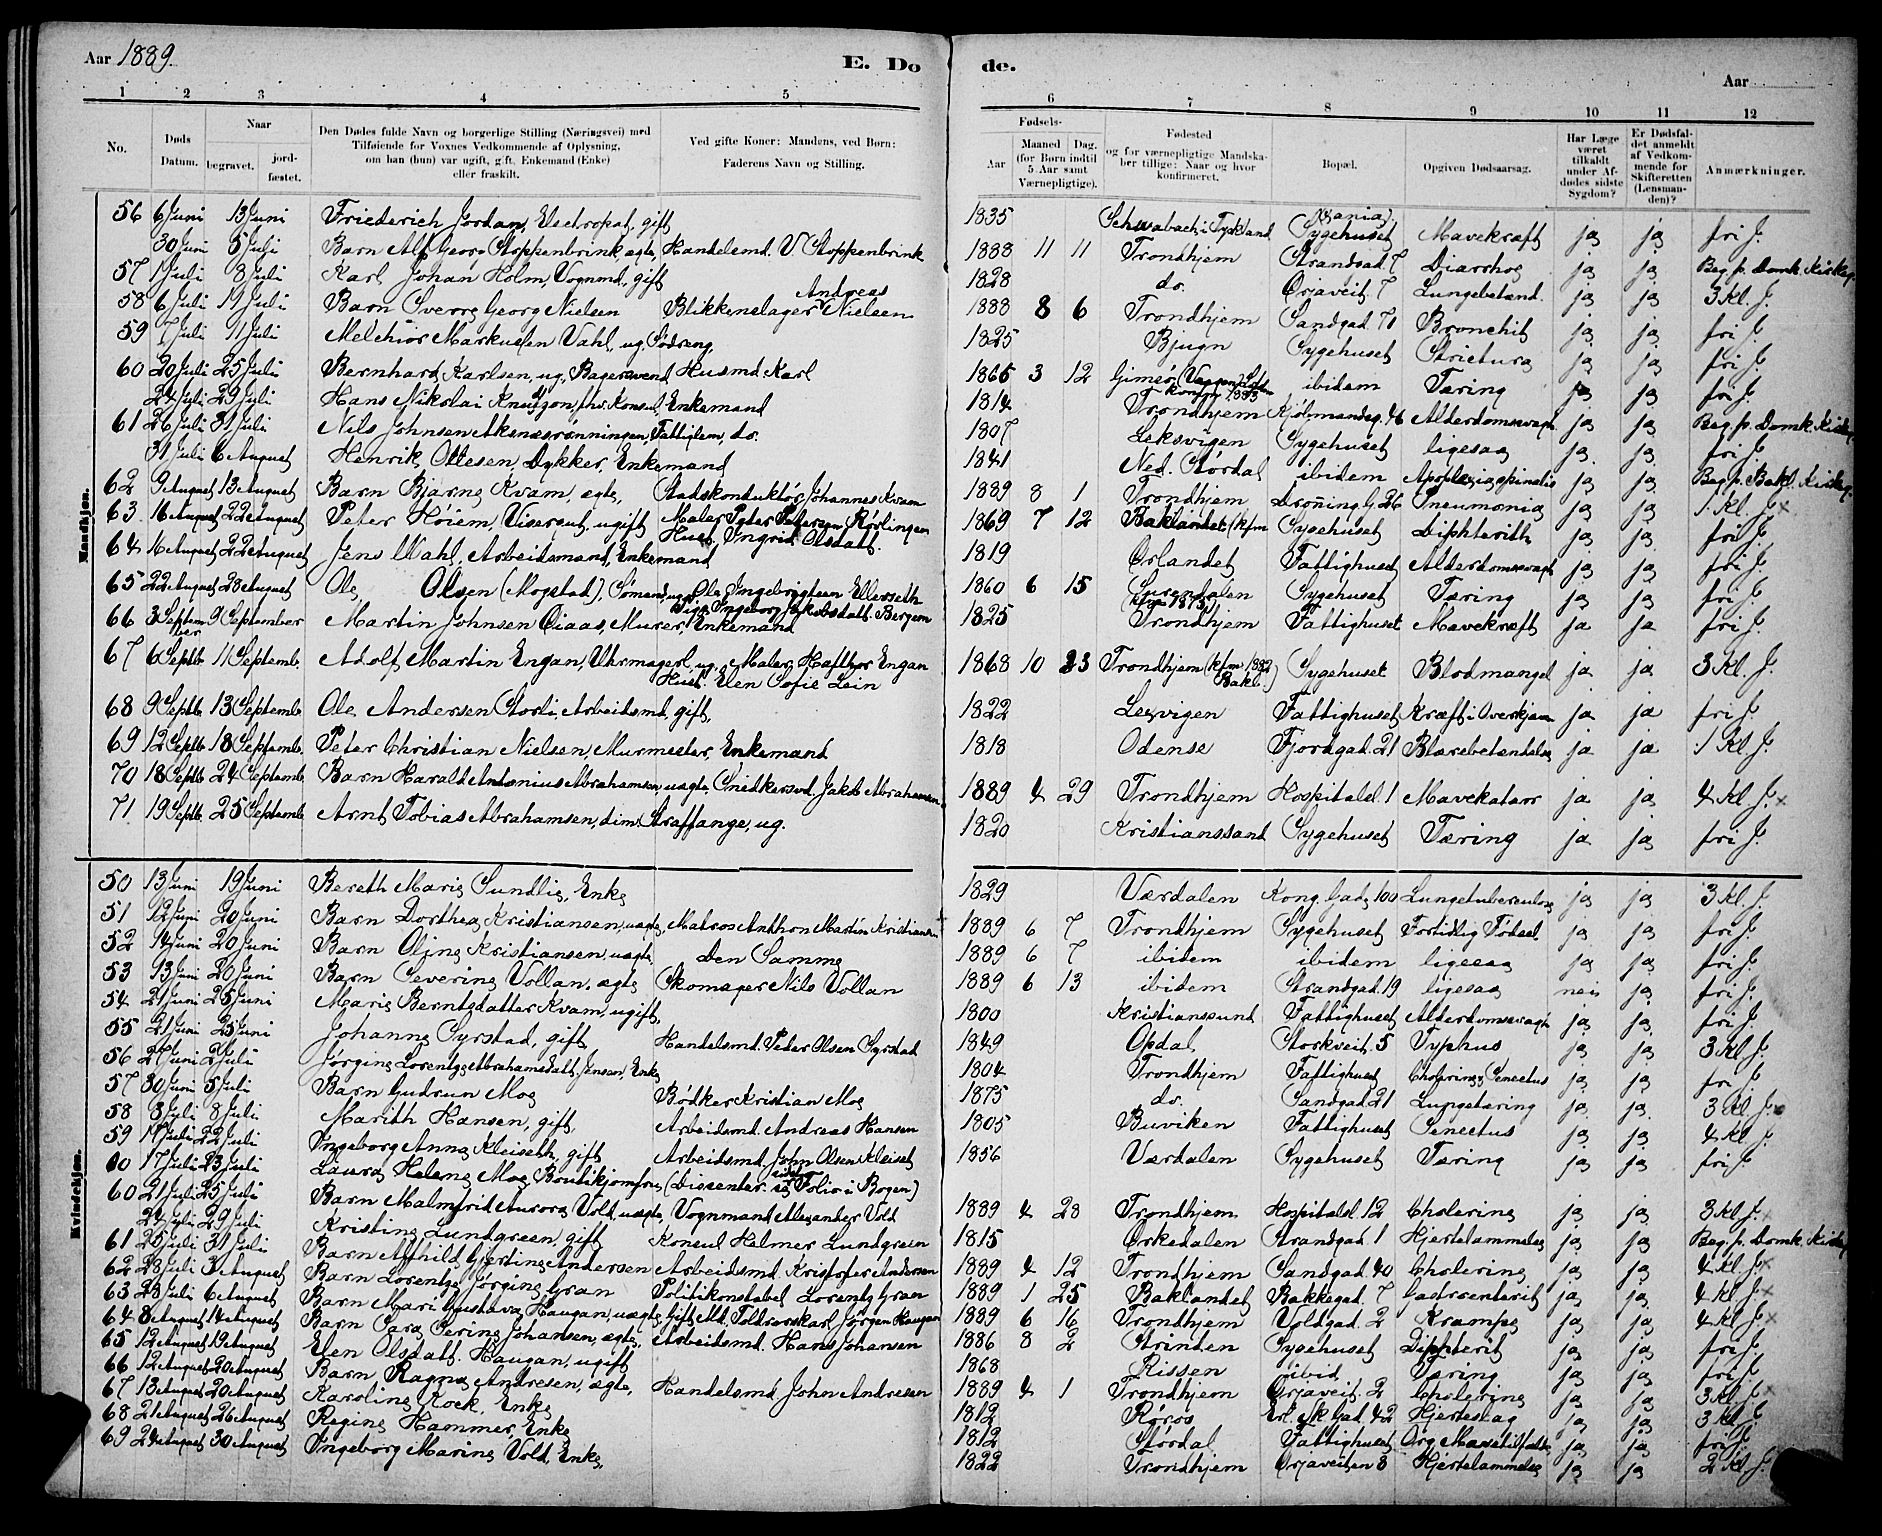 Aar 1889. E. Do de. Aar
1 2 3 4 5 6 7 8 9 10 11 12
No. Døds Datum. Naar begravet. jord-fæstet. Den Dødes fulde Navn og borgerlige Stilling (Næringsvei) med Tilføiende for Voxnes Vedkommende af Oplysning, om han (hun) var ugift, gift, Enkemand (Enke) eller fraskilt. Ved gifte Koner: Mandens, ved Børn: Faderens Navn og Stilling. Fødsels- Aar Maaned (for Børn indtil 5 Aar samt Værnepligtige). Dag. Fødested og for værnepligtige Mandskaber tillige: Naar og hvor konfirmeret. Bopæl. Opgiven Dødsaarsag. Har Læge været tilkaldt under Afdødes sidste Sygdom? Er Dødsfaldet anmeldt af Vedkommende for Skifteretten (Lensmanden)? Anmærkninger.
Mandkjøn.
56 6 Juni 13 Juni Friederich Jordan, Electropat, gift 1835 Schwabach i Tyskland Sygehuset Mavekræft ja ja fri J.
30 Juni 5 Juli Barn Alf Georg Stoppenbrink, ægte, Handelsmd. V. Stoppenbrink 1888 11 11 Trondhjem Strandgad. 7 Diarrhoe ja ja Beg. p. Domk. Kirkeg.
57 1 Juli 8 Juli Karl Johan Holm, Vognmd, gift 1828 do. Ørjaveit. 7 Lungebetænd. ja ja 3 Kl. J.
58 6 Juli 11 Juli Barn Sverre Georg Nielsen Blikkenslager Andreas Nielsen 1888 8 6 Trondhjem Sandgad. 71 Bronchit ja ja fri J.
59 7 Juli 11 Juli Melchior Markussen Vahl, ug. 1825 Bjugn Sygehuset Strictura ja ja fri J.
60 20 Juli 25 Juli Bernhard Karlsen, ug, Bagersvend Husmd. Karl 1865 3 12 Gimsø ibidem Tæring ja ja fri J.
24 Juli 29 Juli Hans Nikolai Knudtzon, fhv. Konsul, Enkemand 1814 Trondhjem Kjøbmandsg. 46 Alderdomssvagh. ja ja Beg. p. Domk. Kirkeg.
61 26 Juli 31 Juli Nils Johnsen Aksnæsrønningen, Fattiglem, do. 1807 Leksvigen Sygehuset ligesaa ja ja fri J.
31 Juli 6 August Henrik Ottesen, Dykker, Enkemand 1841 Ned. Størdal ibidem Apoplexia spinalis ja ja Beg. p. Bakl. Kirkeg.
62 9 August 13 August Barn Bjarne Kvam, ægte, Stadskonduktør Johannes Kvam 1889 8 1 Trondhjem Dronning. G. 26 Pneumonia ja ja 1 Kl. J. x
63 16 August 22 August Peter Høiem, Visergut, ugift Maler Peter Petersen Kørlingen Hust. Ingrid Olsdatt. 1869 7 12 Baklandet (kfm Sygehuset Diphterith ja ja fri J.
64 16 August 22 August Jens Wahl, Arbeidsmand, Enkemand 1819 Ørlandet Fattighuset Alderdomssvagh ja ja fri J.
65 22 August 28 August Ole Olsen (Mogstad), Sømand, ug. Ole Ingebrigtsen Ellerseth Pige Ingeborg Jakobsdatt. Bergem 1860 6 15 Surendalen (kfm 1875) Sygehuset Tæring ja ja fri J.
66 3 September 9 September Martin Johnsen Øiaas, Murer, Enkemand 1825 Trondhjem Fattighuset Mavekræft ja ja fri J.
67 6 Septb. 11 Septemb. Adolf Martin Engan, Uhrmagerl, ug. Maler Hafthor Engan Hust. Elen Sofie Lein 1868 10 23 Trondhjem (kfm 1882 Bakl.) Sygehuset Blodmangel ja ja 3 Kl. J.
68 9 Septb. 13 Septemb. Ole Andersen Storli, Arbeidsmd, gift, 1822 Lexvigen Fattighuset Kræft i Sverkjæven ja ja fri J.
69 12 Septb. 18 Septemb. Peter Christian Nielsen, Murmester, Enkemand 1818 Odense Fjordgad. 21 Blærebetændelse ja ja 1 Kl J.
70 18 Septb. 24 Septemb. Barn Harald Antonius Abrahamsen, uægte, Snedkersvd. Jakob Abrahamsen 1889 4 29 Trondhjem Hospitalsl. 1 Mavekatarr ja ja 4 Kl J. x
71 19 Septb. 25 Septemb. Arnt Tobias Abrahamsen, dim. Straffange, ug. 1820 Kristianssand Sygehuset Tæring ja ja fri J.
Kvindekjøn.
50 13 Juni 19 Juni Bereth Marie Sundlie, Enke 1829 Værdalen Kong. Gade 100 Lungetuberculose ja ja 3 Kl. J.
51 12 Juni 20 Juni Barn Dorthea Kristiansen, uægte, Matros Anthon Martin Kristiansen 1889 6 7 Trondhjem Sygehuset Fortidlig Fødsel ja ja fri J.
52 14 Juni 20 Juni Barn Oline Kristiansen, uægte, Den Samme 1889 6 7 ibidem ibidem ligesaa ja ja fri J.
53 13 Juni 20 Juni Barn Severine Vollan, ægte Skomager Nils Vollan 1889 6 13 ibidem Strandgad. 19 ligesaa nei ja fri J.
54 21 Juni 25 Juni Marie Berntsdatter Kvam, ugift, 1800 Kristianssund Fattighuset Alderdomssvagh ja ja fri J.
55 21 Juni 25 Juni Johanne Syrstad, gift Handelsmd. Peder Olsen Syrstad 1849 Opdal Storkveit. 5 Typhus ja ja 3 Kl. J.
56 27 Juni 2 Juli Jørgine Lorentze Abrahamsdatt. Jensen, Enke 1804 Trondhjem Fattighuset Cholerine, Senectus ja ja fri J.
57 30 Juni 5 Juli Barn Gudrun Moe Bødker Kristian Moe 1875 do. Sandgad. 21 Lungetæring ja ja 3 Kl. J. x
58 3 Juli 8 Juli Marith Hansen, gift Arbeidsmd. Andreas Hansen 1805 Buviken Fattighuset Senectus ja ja 4 Kl J.
59 17 Juli 22 Juli Ingeborg Anna Kleiseth, gift Arbeidsmd. John Olsen Kleiset 1856 Værdalen Sygehuset Tæring ja ja fri J.
17 Juli 23 Juli Laura Helene Moe Boutikjomfru (Dissenter. Folio i Bogen)
60 21 Juli 25 Juli Barn Malmfrid Aurora Vold, uægte, Vognmand Alexander Vold 1889 4 28 Trondhjem Hospitalsl. 12 Cholerine ja ja 3 Kl. J. x
24 Juli 29 Juli Kristine Lundgreen, gift Konsul Helmer Lundgreen 1815 Orkedalen Strandgad. 1 Hjertelammelse ja ja Beg. p. Domk. Kirkeg
61 25 Juli 31 Juli Barn Alfhild Gjertine Andersen Arbeidsmd. Kristofer Andersen 1889 4 12 Trondhjem Sandgad. 40 Cholerine ja ja 4 Kl J. x
62 28 Juli 3 August Barn Lorentze Jørgine Gran Politikonstabel Lorentz Gran 1889 1 25 Baklandet Bakkegad. 7 Gastroenterit ja ja 4 Kl. J. x
63 28 Juli 6 August Barn Mari Gustava Haugan, uægte, Gift Md. Toldrorskarl Jørgen Haugan 1889 6 16 Trondhjem Voldgad. 2 Krampe ja ja 4 Kl J. x
64 8 August 14 August Barn Sara Serine Johansen, ægte, Arbeidsmd. Hans Johansen 1886 8 2 Strinden Sygehuset Diphterit ja ja fri J.
65 12 August 19 August Elen Olsdatt. Haugan, ugift 1868 Rissen ibid. Tæring ja ja fri J.
66 12 August 20 August Barn Ragna Andresen, ægte, Handelsmd. John Andresen 1889 4 1 Trondhjem Ørjaveit. 2 Cholerine ja ja 3 Kl. J. x
67 13 August 20 August Karoline Kock, Enke 1812 Røros Erl. Sk. Gad. 42 Hjerteslag ja ja 3 Kl. J.
68 21 August 26 August Regine Hammer, Enke 1812 Størdal Fattighuset ja ja fri J.
69 24 August 30 August Ingeborg Marine Vold, Enke, 1822 Trondhjem Ørjaveiten 8 Hjertelammelse ja ja 2 Kl. J.